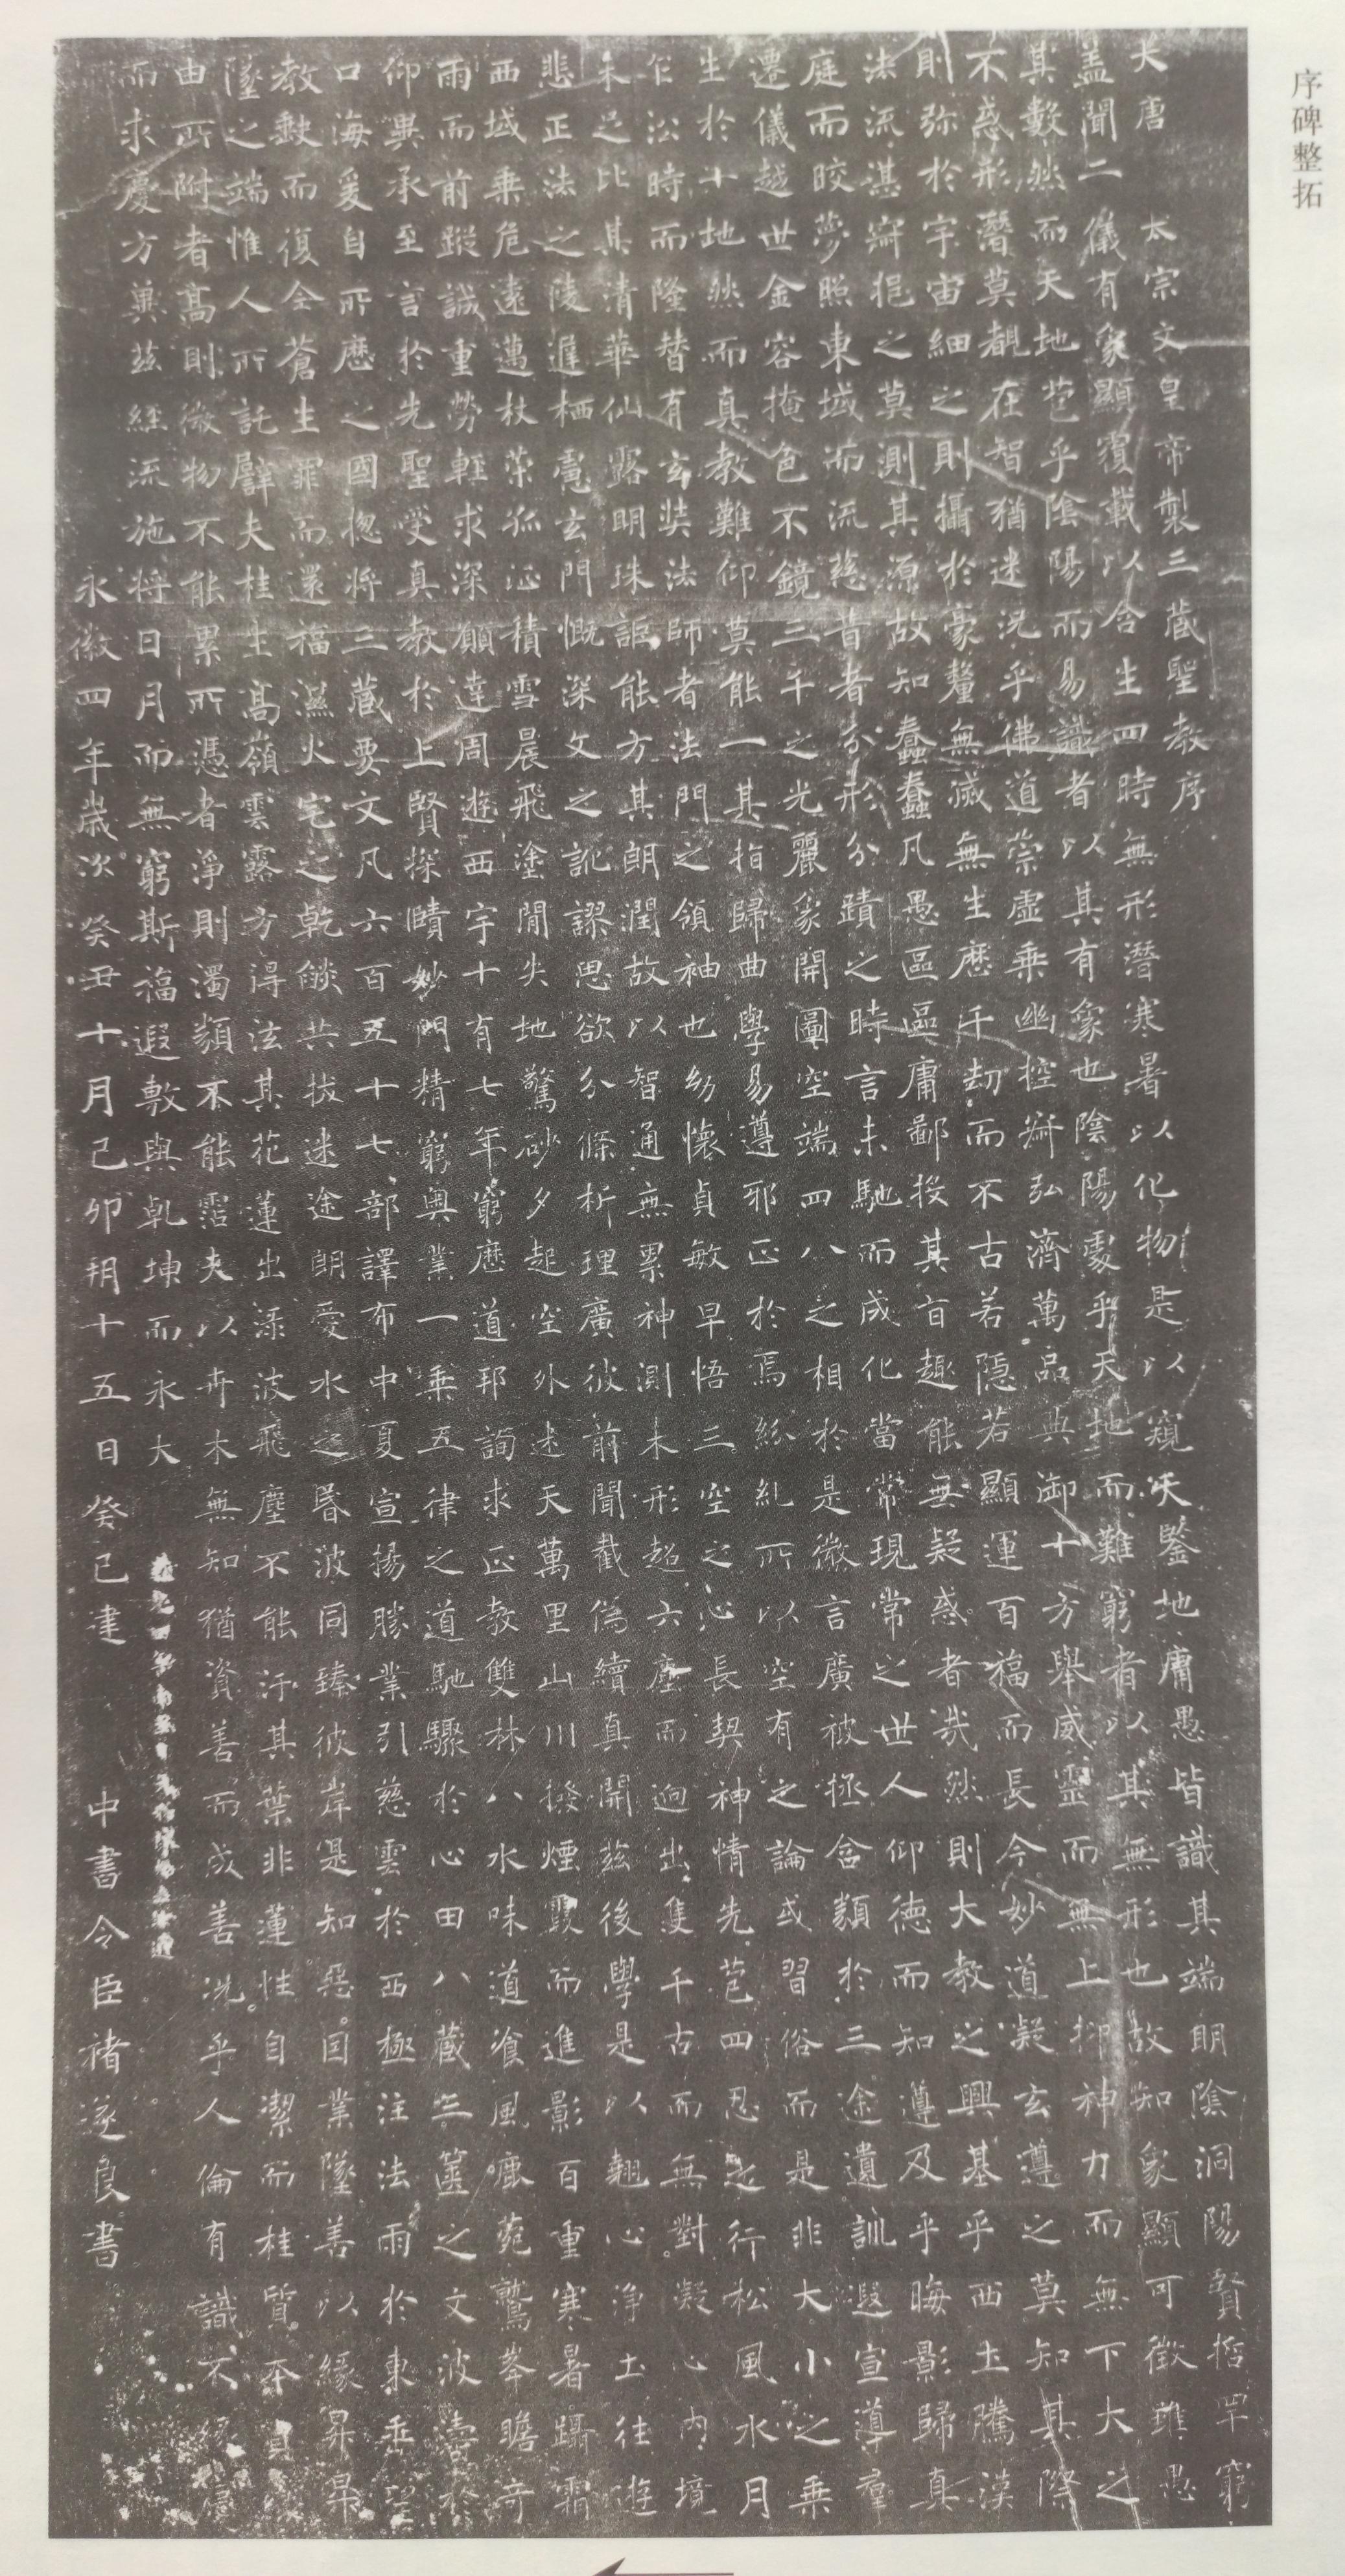 序碑整拓
大唐太宗文皇帝製三藏聖教序
盖聞二儀有象顯覆載以含生四時無形潛寒暑以化物是以窺天鑒地庸愚皆識其端明陰洞陽賢哲罕窮
其數然而天地苞乎陰陽而易識者以其有象也陰陽處乎天地而難窮者以其無形也故知象顯可徵雖愚
不惑形潛莫覩在智猶迷況乎佛道崇虛乘幽控寂弘濟萬品典御十方舉威靈而無上抑神力而無下大之
則弥於宇宙細之則攝於豪釐無滅無生歷千劫而不古若隱若顯運百福而長今妙道凝玄遵之莫知其際
法流湛寂挹之莫測其源故知蠢蠢凡愚區區庸鄙投其旨趣能無疑惑者哉然則大教之興基乎西土騰漢
庭而皎夢照東域而流慈昔者分形分蹟之時言未馳而成化當常現常之世人仰德而知遵及乎晦影歸真
遷儀越世金容掩色不鏡三千之光麗象開圖空端四八之相於是微言廣被拯含類於三途遺訓遐宣導羣
生於十地然而真教難仰莫能一其指歸曲學易遵邪正於焉紛糺所以空有之論或習俗而是非大小之乘
乍沿時而隆替有玄奘法師者法門之領袖也幼懷貞敏早悟三空之心長契神情先苞四忍之行松風水月
未足比其清華仙露明珠詎能方其朗潤故以智通無累神測未形超六塵而迥出隻千古而無對凝心內境
悲正法之陵遲栖慮玄門慨深文之訛謬思欲分條析理廣彼前聞截偽續真開茲後學是以翹心淨土往遊
西域乘危遠邁杖策孤征積雪晨飛塗間失地驚砂夕起空外迷天萬里山川撥煙霞而進影百重寒暑躡霜
雨而前蹤誠重勞輕求深願達周遊西宇十有七年窮歷道邦詢求正教雙林八水味道飡風鹿菀鷲峯瞻奇
仰異承至言於先聖受真教於上賢探賾妙門精窮奧業一乘五律之道馳驟於心田八藏三篋之文波濤於
口海爰自所歷之國揔將三藏要文凡六百五十七部譯布中夏宣揚勝業引慈雲於西極注法雨於東垂聖
教缺而復全蒼生罪而還福濕火宅之乾燄共拔迷途朗愛水之昏波同臻彼岸是知惡因業墜善以緣昇昇
墜之端惟人所託譬夫桂生高嶺雲露方得泫其花蓮出淥波飛塵不能汙其葉非蓮性自潔而桂質本貞
由所附者高則微物不能累所憑者淨則濁類不能霑夫以卉木無知猶資善而成善況乎人倫有識不緣慶
而求慶方冀茲經流施將日月而無窮斯福遐敷與乾坤而永大
永徽四年歲次癸丑十月己卯朔十五日癸巳建 中書令臣褚遂良書